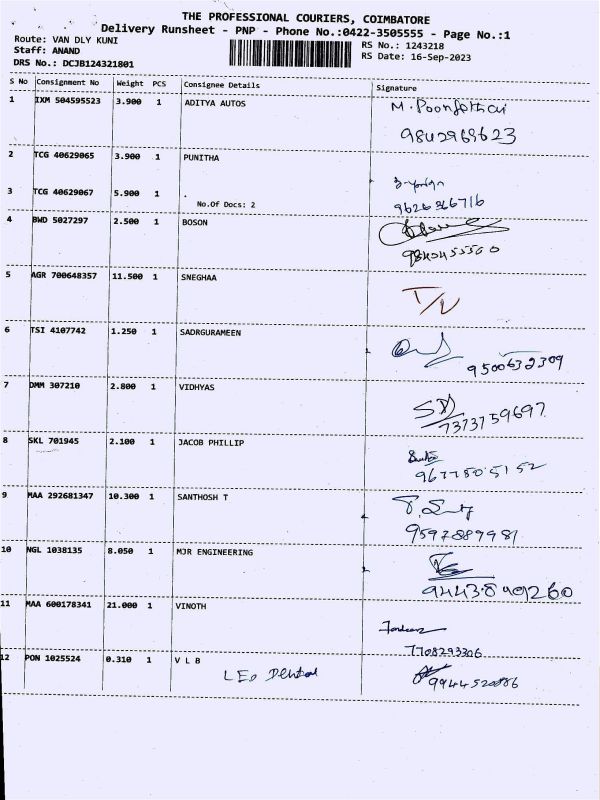 THE PROFESSIONAL COURIERS, COIMBATORE
Delivery Runsheet - PNP - Phone No.:0422-3505555 - Page No.:1
Route: VAN DLY KUNI
RS No.: 1243218
Staff: ANAND
RS Date: 16-Sep-2023
DRS No.: DCJB124321801
S No Consignment No Weight PCS Consignee Details Signature
1 IXM 504595523 3.900 1 ADITYA AUTOS
9842968623
2 TCG 40629065 3.900 1 PUNITHA
3 TCG 40629067 5.900 1 .
No.Of Docs: 2
9626366716
4 BWD 5027297 2.500 1 BOSON
5 AGR 700648357 11.500 1 SNEGHAA
6 TSI 4107742 1.250 1 SADRGURAMEEN
9500632309
7 DMM 307210 2.800 1 VIDHYAS
7373759697
8 SKL 701945 2.100 1 JACOB PHILLIP
9677805152
9 MAA 292681347 10.300 1 SANTHOSH T
9597889981
10 NGL 1038135 8.050 1 MJR ENGINEERING
11 MAA 600178341 21.000 1 VINOTH
7708293306
12 PON 1025524 0.310 1 V L B
LEO Dental